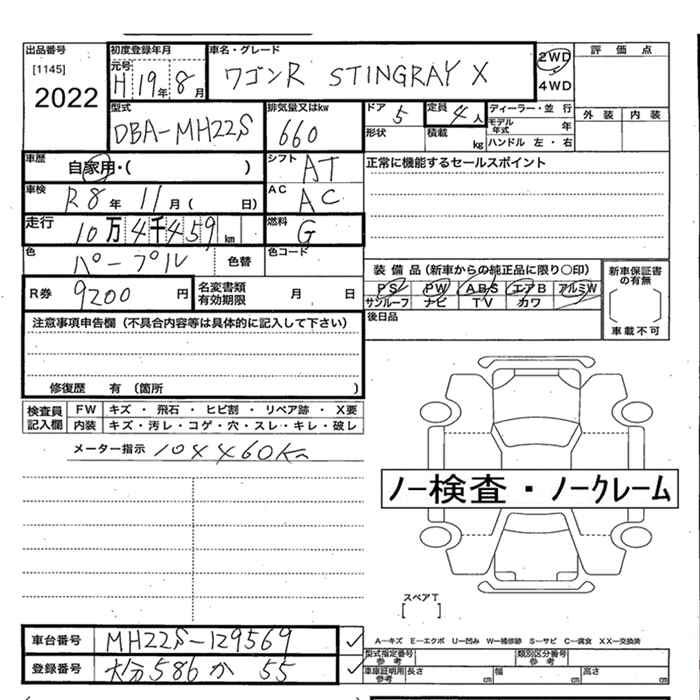 出品番号
[1145]
2022
初度登録年月
元号
H 19年 8月
車名・グレード
ワゴンR STINGRAY X
2WD
4WD
評価点
外装 内装
型式
DBA-MH22S
排気量又はkw
660
ドア 5
形状
定員 4人
積載 kg
ディーラー・並行
モデル年式 年
ハンドル 左・右
車歴
自家用・( )
シフト AT
正常に機能するセールスポイント
車検 R8年 11月( 日)
AC AC
走行 10万4千459km
燃料 G
色 パープル 色替
色コード
R券 9200円
名変書類有効期限 月 日
装備品(新車からの純正品に限り○印)
PS PW ABS エアB アルミW
サンルーフ ナビ TV カワ
新車保証書の有無
車載不可
後日品
注意事項申告欄(不具合内容等は具体的に記入して下さい)
修復歴 有 (箇所 )
検査員記入欄
FW キズ・飛石・ヒビ割・リペア跡・X要
内装 キズ・汚レ・コゲ・穴・スレ・キレ・破レ
メーター指示 104460Km
ノー検査・ノークレーム
スペアT
[ ]
A-キズ E-エクボ U-凹み W-補修跡 S-サビ C-腐食 XX-交換済
車台番号 MH22S-129569
登録番号 大分586か55
型式指定番号参考
類別区分番号参考
車庫証明用参考 長さ cm 幅 cm 高さ cm